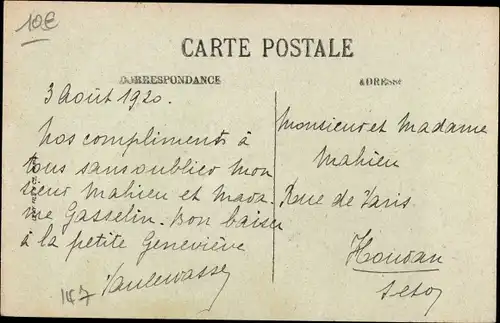 10€
CARTE POSTALE
CORRESPONDANCE
ADRESSE
3 Août 1920.
Nos compliments à
tous sans oublier Mon
sieur Mahieu et Mada
me Gasselin. Bon baiser
à la petite Geneviève
147
Monsieur et Madame
Mahieu
Rue de Paris
Houdan